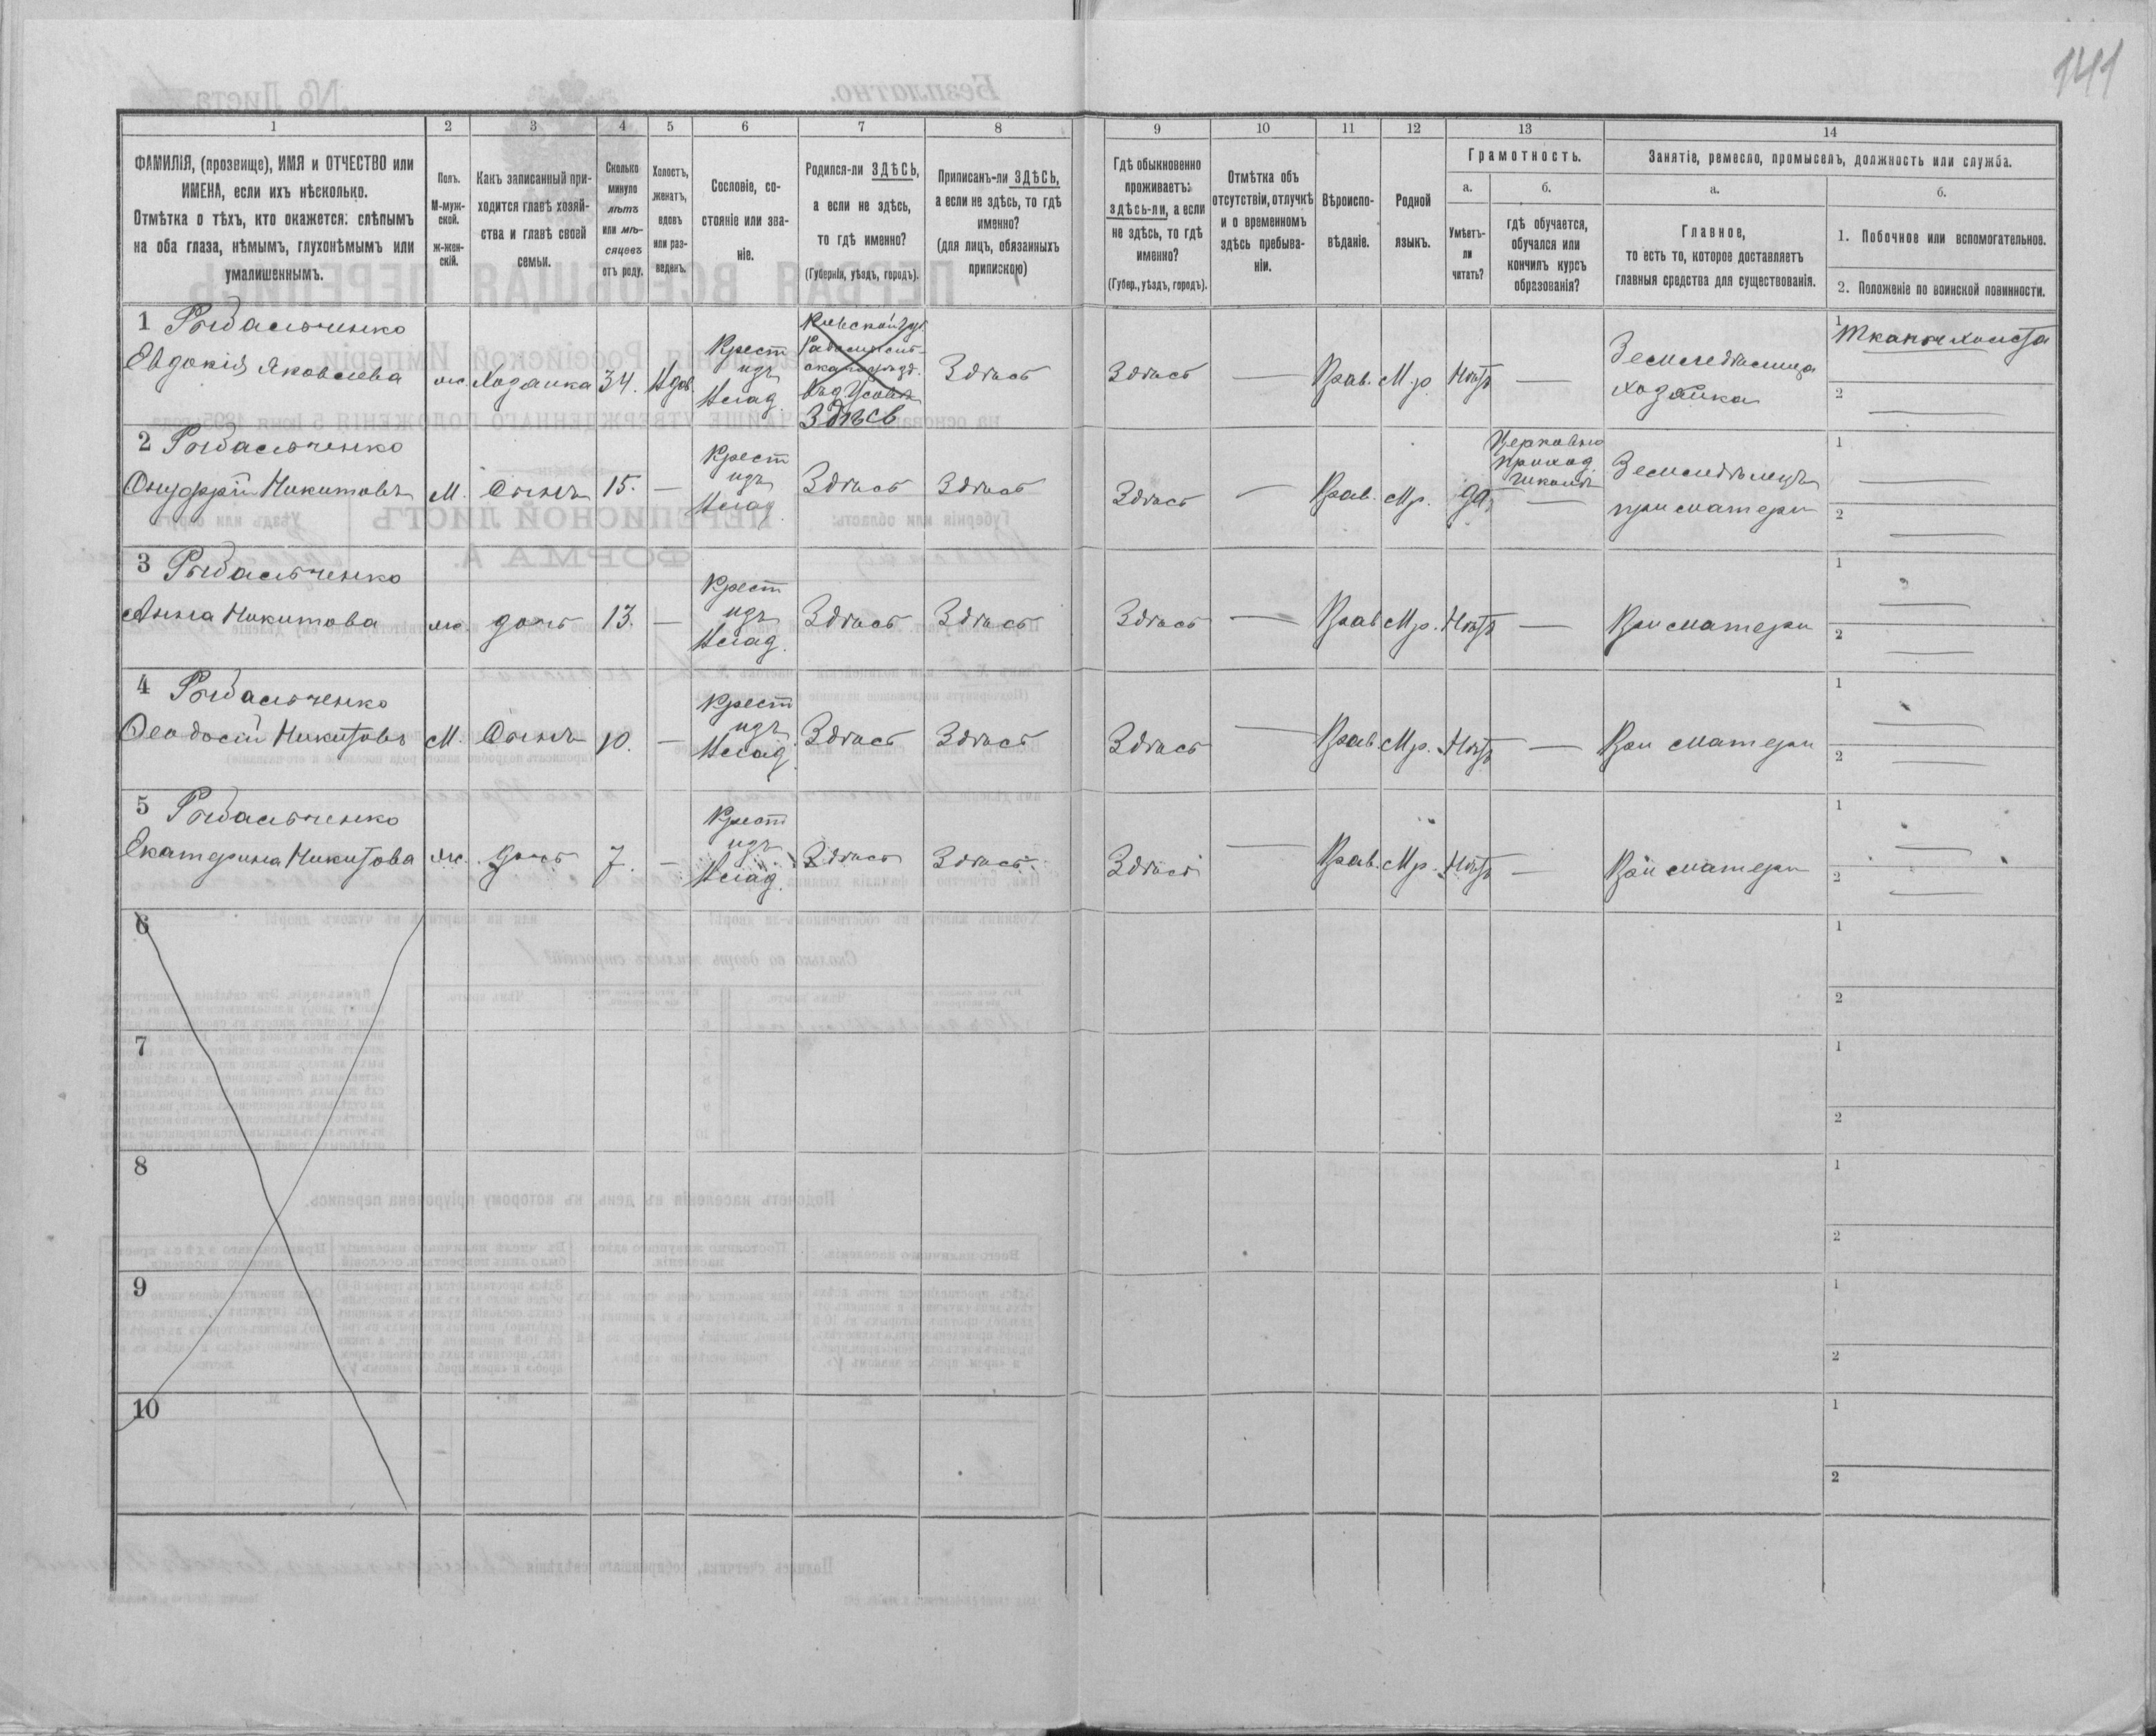 141
1
2
3
4
5
6
7
8
9
10
11
12
13
14
ФАМИЛІЯ, (прозвище), ИМЯ и ОТЧЕСТВО или
ИМЕНА, если ихъ нѣсколько.
Отмѣтка о тѣхъ, кто окажется: слѣпымъ
на оба глаза, нѣмымъ, глухонѣмымъ или
умалишеннымъ.
Полъ.
М-муж-
ской.
ж-жен-
скій.
Какъ записанный при-
ходится главѣ хозяй-
ства и главѣ своей
семьи.
Сколько
минуло
лѣтъ
или мѣ-
сяцевъ
отъ роду.
Холостъ,
женатъ,
вдовъ
или раз-
веденъ.
Сословіе, со-
стояніе или зва-
ніе.
Родился-ли ЗДѢСЬ,
а если не здѣсь,
то гдѣ именно?
(Губернія, уѣздъ, городъ).
Приписанъ-ли ЗДѢСЬ,
а если не здѣсь, то гдѣ
именно?
(для лицъ, обязанныхъ
припискою)
Гдѣ обыкновенно
проживаетъ:
здѣсь-ли, а если
не здѣсь, то гдѣ
именно?
(Губер., уѣздъ, городъ).
Отмѣтка объ
отсутствіи, отлучкѣ
и о временномъ
здѣсь пребыва-
ніи.
Вѣроиспо-
вѣданіе.
Родной
языкъ.
Грамотность.
а.
Умѣетъ-
ли
читать?
б.
гдѣ обучается,
обучался или
кончилъ курсъ
образованія?
Занятіе, ремесло, промыселъ, должность или служба.
а.
Главное,
то есть то, которое доставляетъ
главныя средства для существованія.
б.
1. Побочное или вспомогательное.
2. Положеніе по воинской повинности.
1 Рыбальченко
Евдокія Яковлева
ж.
Хозяйка
34.
Вдов.
Крест
изъ
Влад.
Кіевской губ.
Здѣсь
Здѣсь
Здѣсь
—
Прав.
М.р
Нѣтъ
—
Земледѣлица
хозяйка
1
Тканье холста
2
—
2 Рыбальченко
Онуфрій Никитовъ
М.
Сынъ
15.
—
Крест
изъ
Влад.
Здѣсь
Здѣсь
Здѣсь
—
Прав.
Мр.
да
Церковно
приход.
школѣ
—
Земледѣлецъ
при матери
1
—
2
—
3 Рыбальченко
Анна Никитова
ж.
дочь
13.
—
Крест
изъ
Влад.
Здѣсь
Здѣсь
Здѣсь
—
Прав
Мр.
Нѣтъ
—
При матери
1
—
2
—
4 Рыбальченко
Феодосій Никитовъ
М.
Сынъ
10.
—
Крест
изъ
Влад.
Здѣсь
Здѣсь
Здѣсь
—
Прав.
Мр.
Нѣтъ
—
При матери
1
—
2
—
5 Рыбальченко
Екатерина Никитова
ж.
дочь
7.
—
Крест
изъ
Влад.
Здѣсь
Здѣсь
Здѣсь
—
Прав.
Мр.
Нѣтъ
—
При матери
1
—
2
—
6
1
2
7
1
2
8
1
2
9
1
2
10
1
2